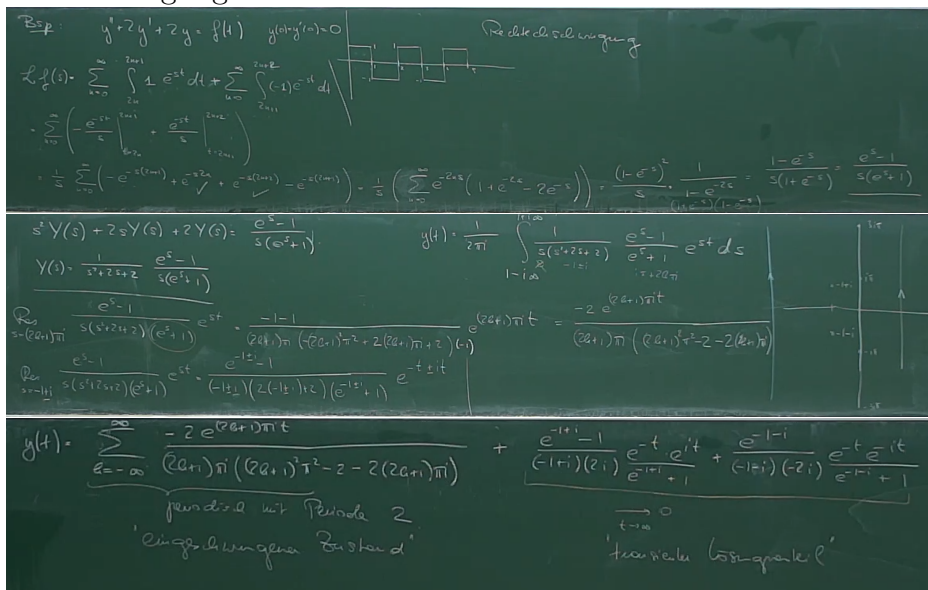 Bsp. y'' + 2y' + 2y = f(t) y(0) = y'(0) = 0 Rechteckschwingung
ℒf(s) = ∑_{n=0}^{∞} ∫_{2n}^{2n+1} 1 e^{-st} dt + ∑_{n=0}^{∞} ∫_{2n+1}^{2n+2} (-1) e^{-st} dt
= ∑_{n=0}^{∞} ( - e^{-st}/s |_{t=2n}^{2n+1} + e^{-st}/s |_{t=2n+1}^{2n+2} )
= 1/s ∑_{n=0}^{∞} ( -e^{-s(2n+1)} + e^{-s2n} + e^{-s(2n+2)} - e^{-s(2n+1)} ) = 1/s ( ∑_{n=0}^{∞} e^{-2ns} (1 + e^{-2s} - 2e^{-s}) ) = (1-e^{-s})^2/s · 1/(1-e^{-2s}) = (1-e^{-s})/(s(1+e^{-s})) = (e^s-1)/(s(e^s+1))
(1+e^{-s})(1-e^{-s})
s² Y(s) + 2s Y(s) + 2 Y(s) = (e^s-1)/(s(e^s+1)) y(t) = 1/(2πi) ∫_{1-i∞}^{1+i∞} 1/(s(s²+2s+2)) (e^s-1)/(e^s+1) e^{st} ds
Y(s) = 1/(s²+2s+2) (e^s-1)/(s(e^s+1))
-1±i
-1+i
-1-i
Res_{s=(2k+1)πi} (e^s-1)/(s(s²+2s+2)(e^s+1)) e^{st} = (-1-1)/((2k+1)πi (-(2k+1)²π² + 2(2k+1)πi + 2)(-1)) e^{(2k+1)πit} = -2 e^{(2k+1)πit}/((2k+1)πi ((2k+1)²π² - 2 - 2(2k+1)πi))
Res_{s=-1±i} (e^s-1)/(s(s²+2s+2)(e^s+1)) e^{st} = (e^{-1±i}-1)/((-1±i)(2(-1±i)+2)(e^{-1±i}+1)) e^{-t±it}
y(t) = ∑_{k=-∞}^{∞} -2 e^{(2k+1)πit}/((2k+1)πi ((2k+1)²π² - 2 - 2(2k+1)πi)) + (e^{-1+i}-1)/((-1+i)(2i)) (e^{-t} · e^{it})/(e^{-1+i}+1) + (e^{-1-i}-1)/((-1-i)(-2i)) (e^{-t} e^{-it})/(e^{-1-i}+1)
periodisch mit Periode 2 ⟶_{t→∞} 0
"eingeschwungener Zustand" "transienter Lösungsanteil"